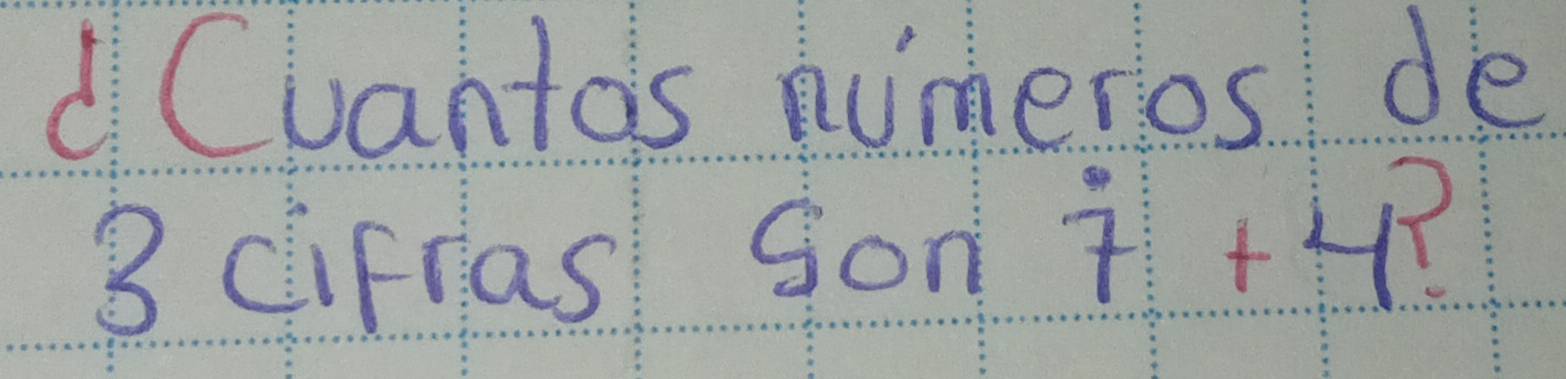 ¿Cuantos números de
3 cifras son 7̇ + 4?